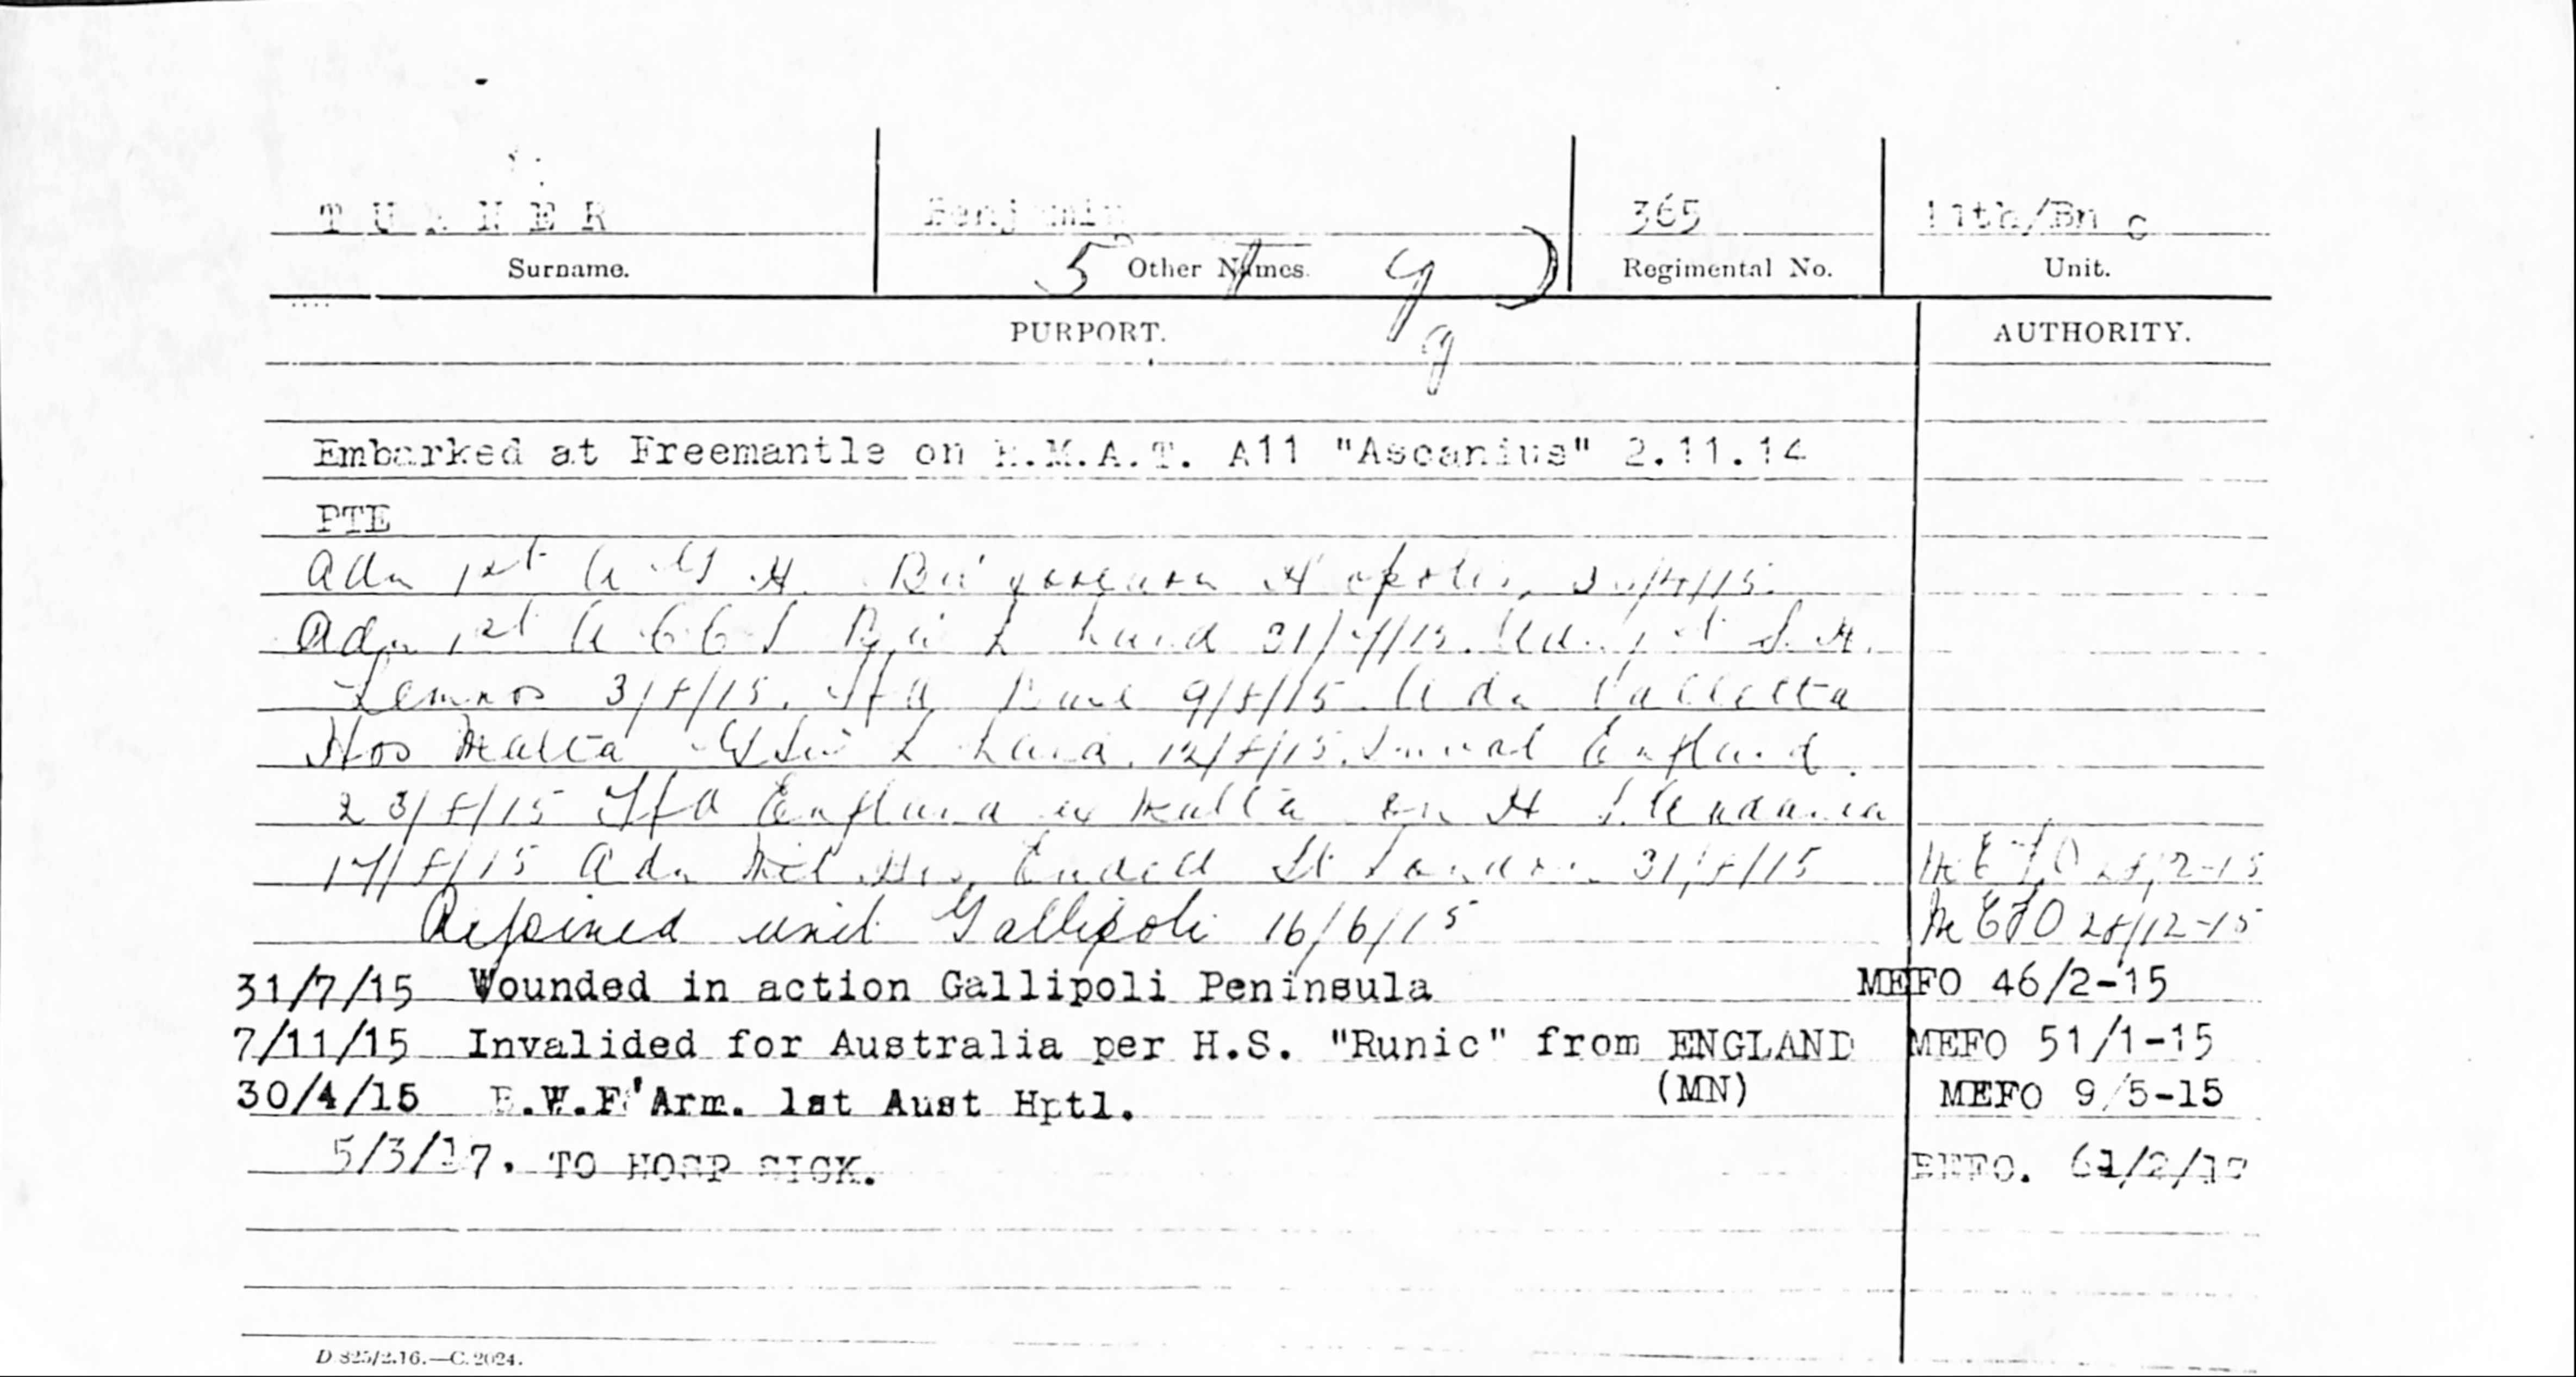 TURNER Benjamin 365 11th/Bn C
Surname. Other Names. Regimental No. Unit.
5
PURPORT. AUTHORITY.
Embarked at Freemantle on H.M.A.T. A11 "Ascanius" 2.11.14
PTE
Adm 1st A G H 30/4/15.
Adm 1st A C C S hand 31/7/15. Adm 1st S. H.
Lemnos 3/8/15. Tfd 9/8/15 Adm Valletta
Hos Malta hand 12/8/15. England
23/8/15 Tfd England ex Malta on H S
17/8/15 Adm Mil Hos Endell St London 31/8/15 MEFO 28/12-15
Rejoined unit Gallipoli 16/6/15 MEFO 28/12-15
31/7/15 Wounded in action Gallipoli Peninsula MEFO 46/2-15
7/11/15 Invalided for Australia per H.S. "Runic" from ENGLAND MEFO 51/1-15
30/4/15 B.W.F'Arm. 1st Aust Hptl. (MN) MEFO 9/5-15
5/3/17. TO HOSP SICK. BEFO. 61/2/
D 825/2.16.—C.2024.